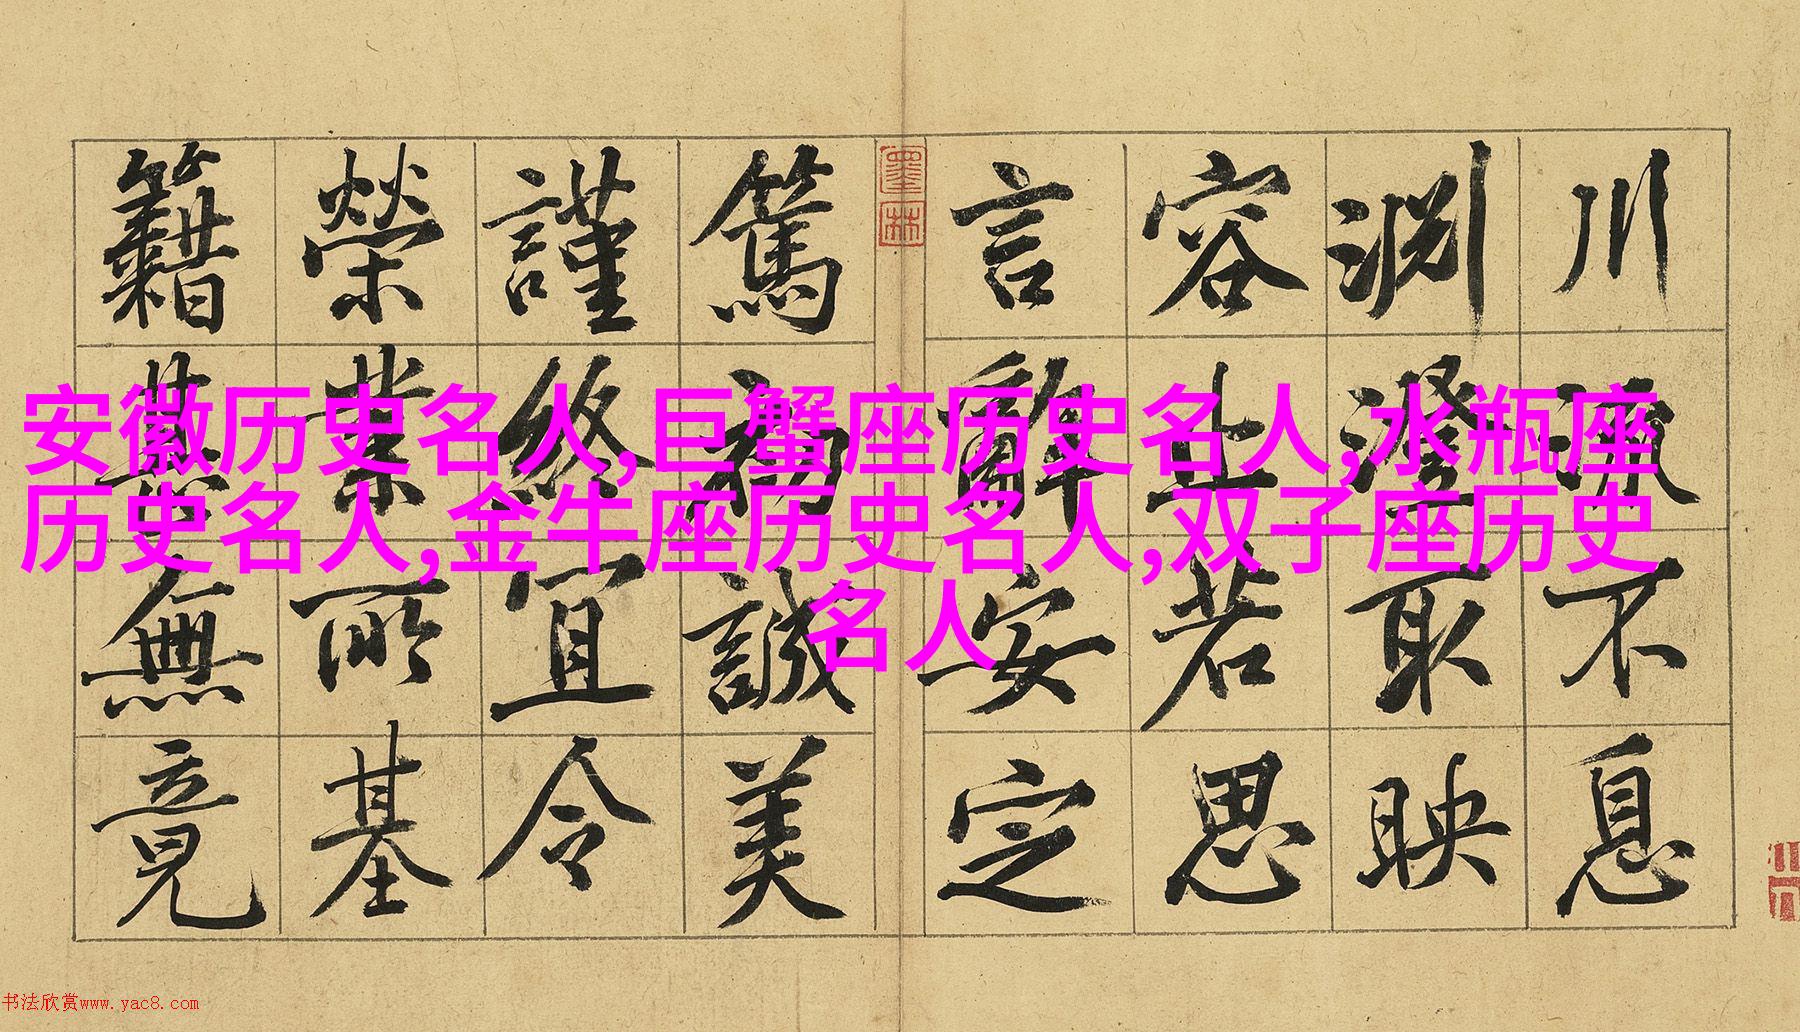 川流不息
淵澄取映
容止若思
言辭安定
墨林
篤初誠美
謹終宜令
榮業所基
籍甚無竟
安徽历史名人,巨蟹座历史名人,水瓶座
历史名人,金牛座历史名人,双子座历史
名人
书法欣赏www.yac8.com